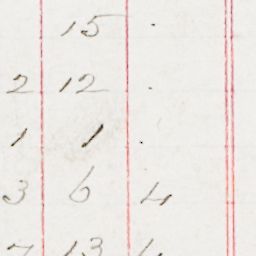 15 .
2 12 .
1 1 .
3 6 4
7 13 4